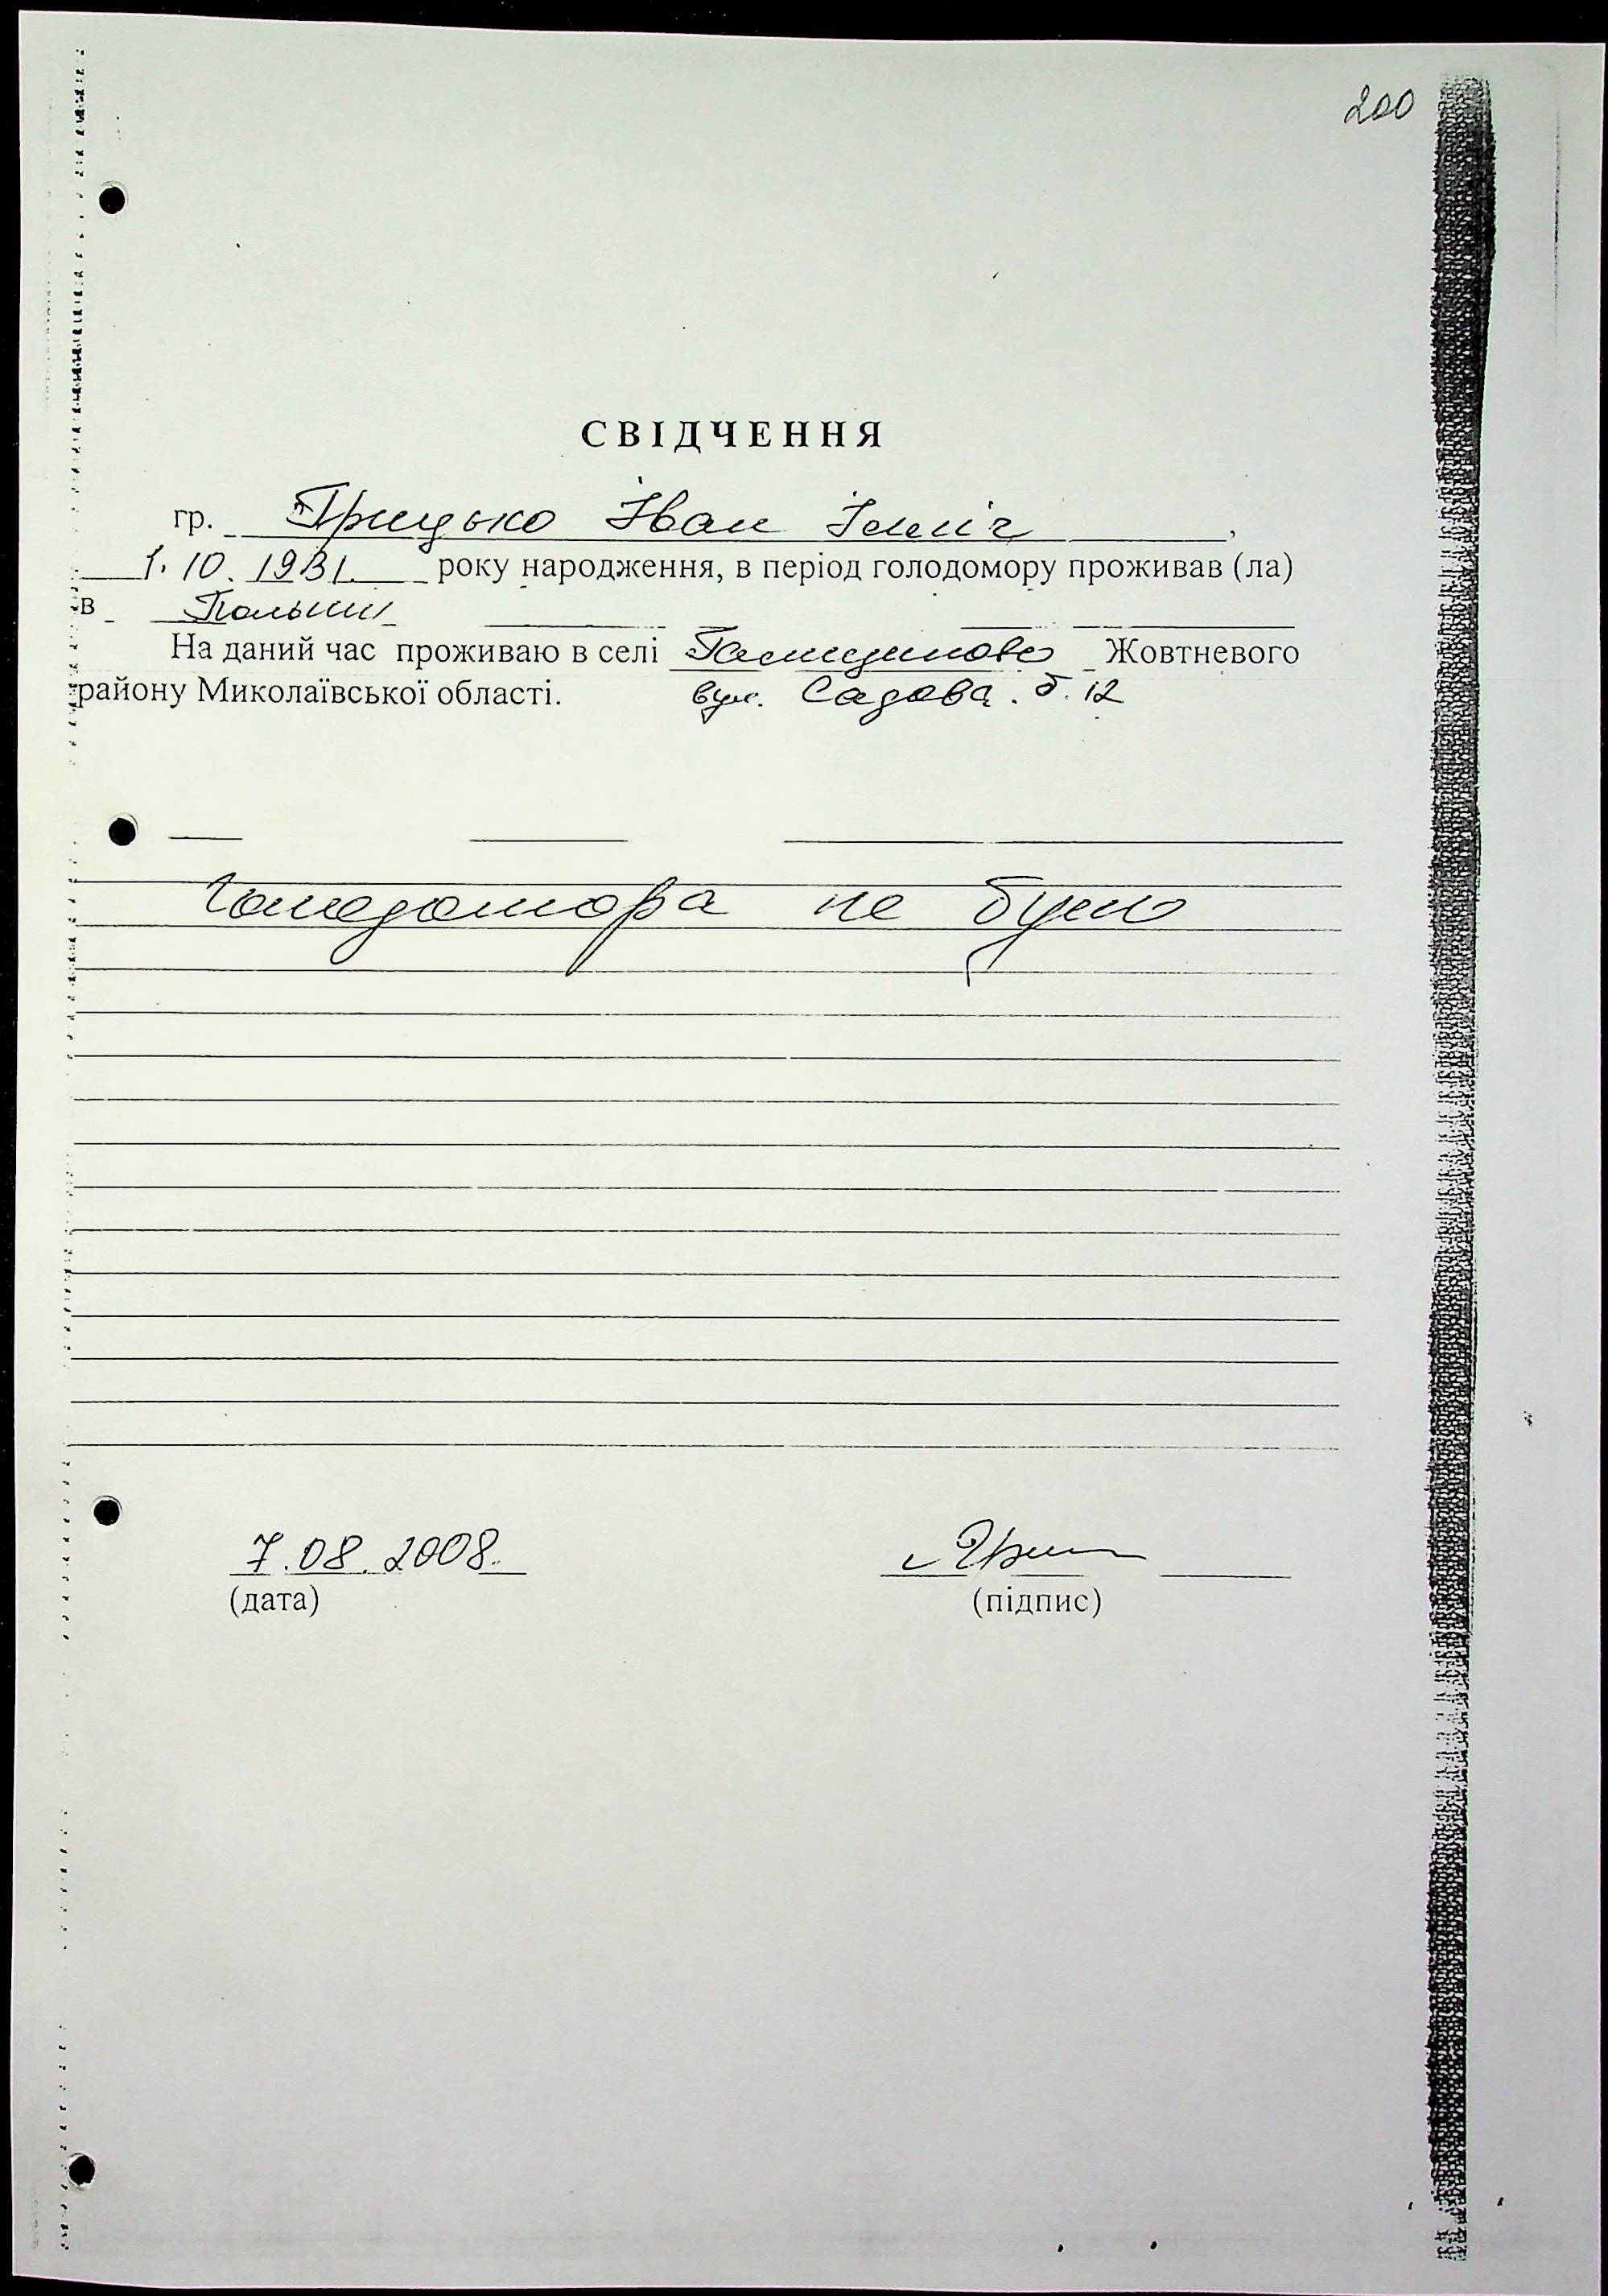 200
СВІДЧЕННЯ
гр. Грицько Іван Ілліч,
1.10.1931 року народження, в період голодомору проживав (ла)
в Польши
На даний час проживаю в селі Галицинове Жовтневого
району Миколаївської області. вул. Садова. б. 12
Голодомора не було
7.08.2008.
(дата) (підпис)